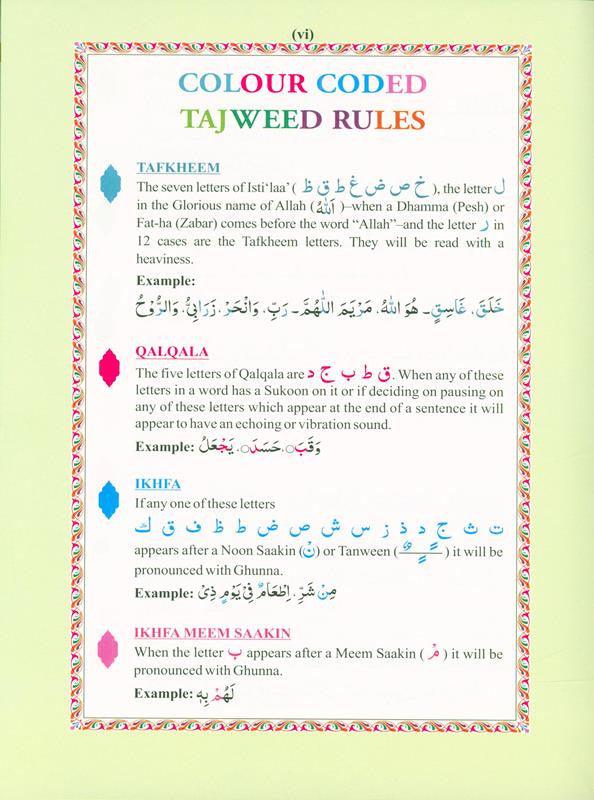 (vi)
COLOUR CODED
TAJWEED RULES
TAFKHEEM
The seven letters of Isti‘laa’ ( خ ص ض غ ط ق ظ ), the letter ل
in the Glorious name of Allah ( اَللّٰهُ )–when a Dhamma (Pesh) or
Fat-ha (Zabar) comes before the word “Allah”–and the letter ر in
12 cases are the Tafkheem letters. They will be read with a
heaviness.
Example:
خَلَقَ، غَاسِقٍ۔ هُوَ اللّٰهُ، مَرْيَمَ اللّٰهُمَّ۔ رَبِّ، وَانْحَرْ، زَرَابِيُّ، وَالرُّوْحُ
QALQALA
The five letters of Qalqala are ق ط ب ج د. When any of these
letters in a word has a Sukoon on it or if deciding on pausing on
any of these letters which appear at the end of a sentence it will
appear to have an echoing or vibration sound.
Example: وَقَبَ○، حَسَدَ○، يَجْعَلُ
IKHFA
If any one of these letters
ت ث ج د ذ ز س ش ص ض ط ظ ف ق ك
appears after a Noon Saakin (نْ) or Tanween ( ـًـٍـٌ ) it will be
pronounced with Ghunna.
Example: مِنْ شَرِّ، اِطْعَامٌ فِيْ يَوْمٍ ذِيْ
IKHFA MEEM SAAKIN
When the letter ب appears after a Meem Saakin ( مْ ) it will be
pronounced with Ghunna.
Example: لَهُمْ بِهٖ